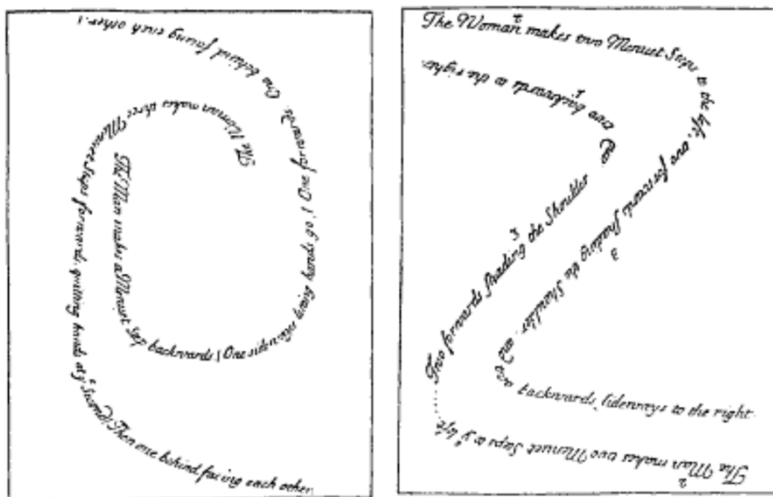 The Woman makes three Menuet Steps forward, quitting hands at yᵉ Second: Then one behind facing each other.
The Man makes a Menuet Step backwards | One sideways being hands, go | One forwards, One behind facing each other. 1
The Woman makes two Menuet Steps to the left, two forwards shading the Shoulder, and two backwards, sideways to the right.
2
3
The Man makes two Menuet Steps to yᵉ left
2
Two forwards shading the Shoulder and two backwards to the right.
3